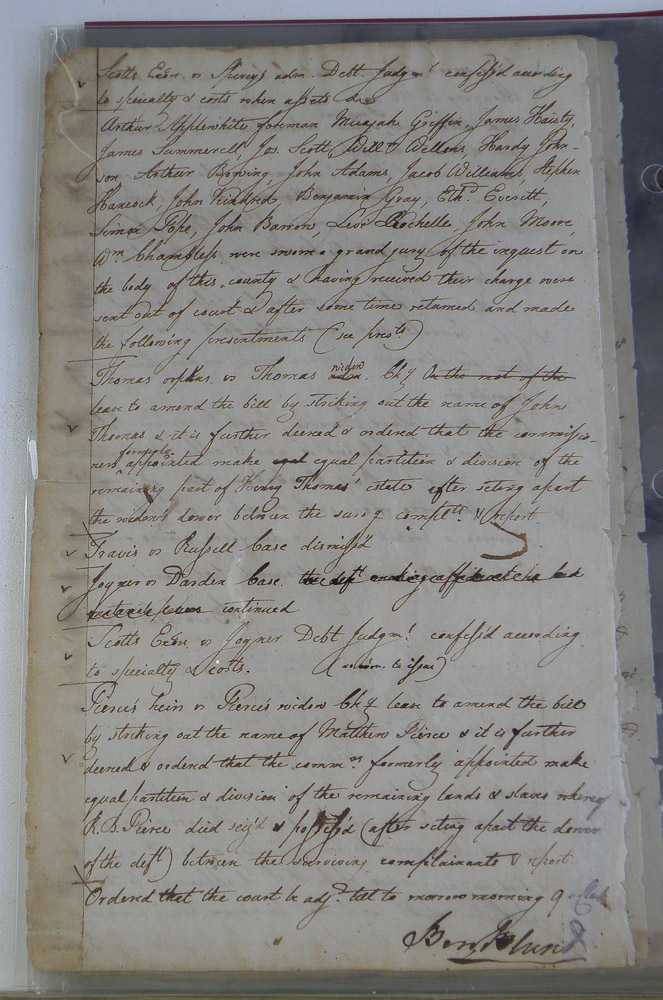 Scotts Exõr. vs Spiveys adm. Debt. Judgmt. confess'd according
to specialty & costs when assets &c
Arthur Applewhite foreman Micajah Griffin, James Haisty,
James Summerell Jos. Scott, Will Wellons, Hardy John-
son, Arthur Bowing John Adams, Jacob Williams, Stephen
Hancock, John Kindred, Benjamin Gray, Ethd. Everitt,
Simon Pope, John Barrow, Levi Rochelle, John Moore,
Wm. Chambless were sworn a grand jury of the inquest on
the body of this county & having received their charge were
sent out of court & after some time returned and made
the following presentments (see prests)
Thomas orphns. vs Thomas widow. Chy On the mot of the
leave to amend the bill by striking out the name of John
Thomas & it is further decreed & ordered that the commissio-
ners formerly appointed make equal partition & division of the
remaining part of Henry Thomas' estate after seting apart
the widow's dower between the survg complts. & report
Travis vs Russell Case dismiss'd
Joyner vs Darden Case. the deft making affidavit he had
continued
Scotts Exõr. vs Joyner Debt Judgmt. confess'd according
to specialty & costs.
Pierce's heirs vs Pierce's widow Chy leave to amend the bill
by striking out the name of Matthew Pierce & it is further
decreed & ordered that the commrs formerly appointed make
equal partition & division of the remaining lands & slaves whereof
R. B. Pierce died seiz'd & possess'd (after seting apart the dower
of the deft) between the surviving complainants & report
Ordered that the court be adjd. till to morrow morning 9 oClock
Benj Blunt